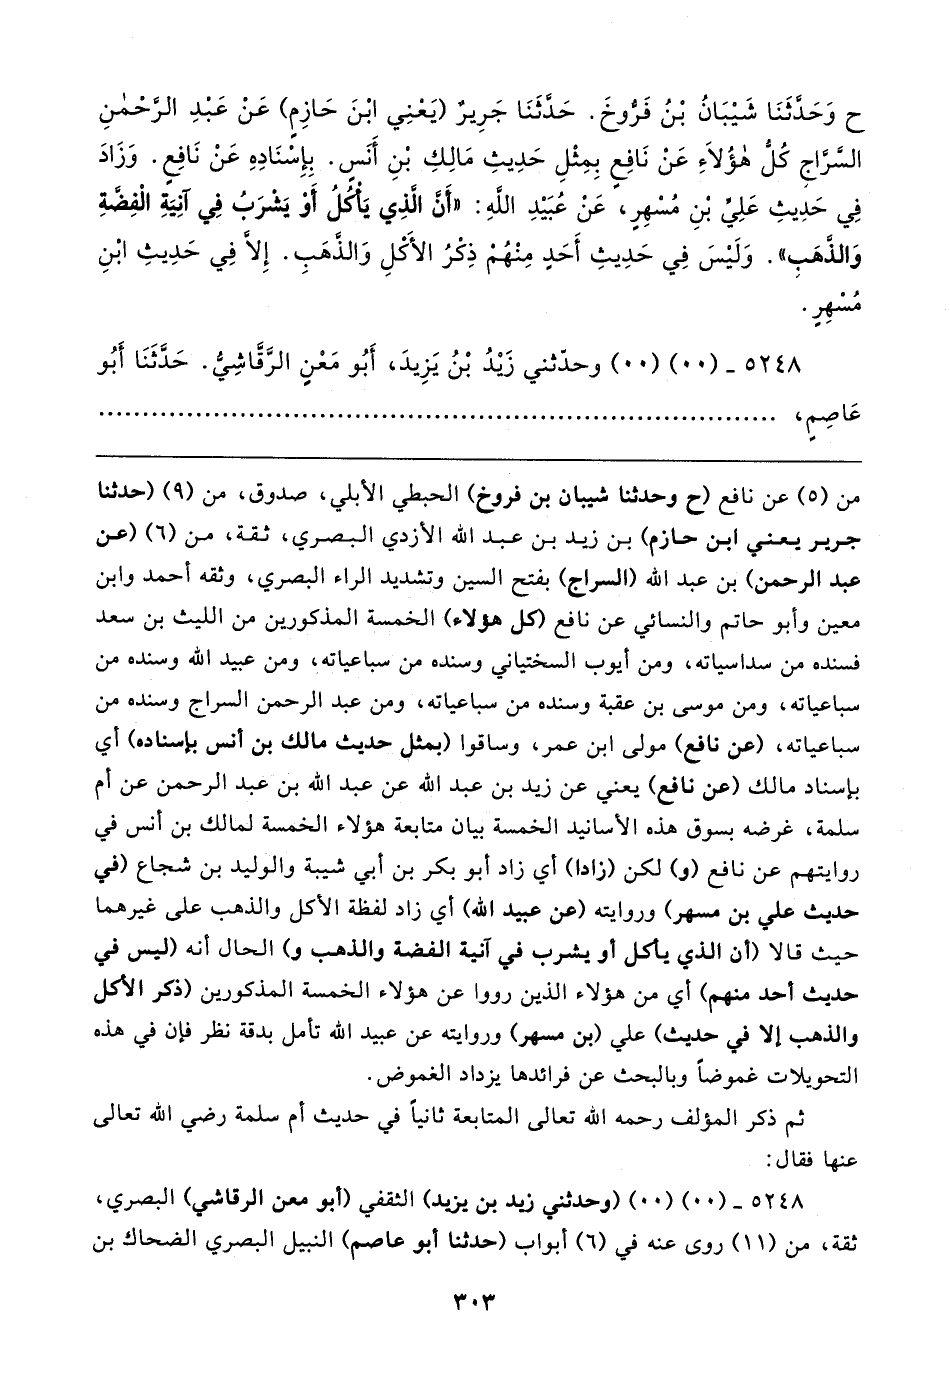 ح وَحَدَّثَنَا شَيْبَانُ بْنُ فَرُّوخَ. حَدَّثَنَا جَرِيرٌ (يَعْنِي ابْنَ حَازِمٍ) عَنْ عَبْدِ الرَّحْمٰنِ
السَّرَّاجِ كُلُّ هٰؤُلاَءِ عَنْ نَافِعٍ بِمِثْلِ حَدِيثِ مَالِكِ بْنِ أَنَسٍ. بِإِسْنَادِهِ عَنْ نَافِعٍ. وَزَادَ
فِي حَدِيثِ عَلِيِّ بْنِ مُسْهِرٍ، عَنْ عُبَيْدِ اللَّهِ: «أَنَّ الَّذِي يَأْكُلُ أَوْ يَشْرَبُ فِي آنِيَةِ الْفِضَّةِ
وَالذَّهَبِ». وَلَيْسَ فِي حَدِيثِ أَحَدٍ مِنْهُمْ ذِكْرُ الأَكْلِ وَالذَّهَبِ. إِلاَّ فِي حَدِيثِ ابْنِ
مُسْهِرٍ.
٥٢٤٨ - (٠٠) (٠٠) وحدّثني زَيْدُ بْنُ يَزِيدَ، أَبُو مَعْنٍ الرَّقَّاشِيُّ. حَدَّثَنَا أَبُو
عَاصِمٍ، ........................................................................
من (٥) عن نافع (ح وحدثنا شيبان بن فروخ) الحبطي الأبلي، صدوق، من (٩) (حدثنا
جرير يعني ابن حازم) بن زيد بن عبد الله الأزدي البصري، ثقة، من (٦) (عن
عبد الرحمن) بن عبد الله (السراج) بفتح السين وتشديد الراء البصري، وثقه أحمد وابن
معين وأبو حاتم والنسائي عن نافع (كل هؤلاء) الخمسة المذكورين من الليث بن سعد
فسنده من سداسياته، ومن أيوب السختياني وسنده من سباعياته، ومن عبيد الله وسنده من
سباعياته، ومن موسى بن عقبة وسنده من سباعياته، ومن عبد الرحمن السراج وسنده من
سباعياته، (عن نافع) مولى ابن عمر، وساقوا (بمثل حديث مالك بن أنس بإسناده) أي
بإسناد مالك (عن نافع) يعني عن زيد بن عبد الله عن عبد الله بن عبد الرحمن عن أم
سلمة، غرضه بسوق هذه الأسانيد الخمسة بيان متابعة هؤلاء الخمسة لمالك بن أنس في
روايتهم عن نافع (و) لكن (زادا) أي زاد أبو بكر بن أبي شيبة والوليد بن شجاع (في
حديث علي بن مسهر) وروايته (عن عبيد الله) أي زاد لفظة الأكل والذهب على غيرهما
حيث قالا (أن الذي يأكل أو يشرب في آنية الفضة والذهب و) الحال أنه (ليس في
حديث أحد منهم) أي من هؤلاء الذين رووا عن هؤلاء الخمسة المذكورين (ذكر الأكل
والذهب إلا في حديث) علي (بن مسهر) وروايته عن عبيد الله تأمل بدقة نظر فإن في هذه
التحويلات غموضاً وبالبحث عن فرائدها يزداد الغموض.
ثم ذكر المؤلف رحمه الله تعالى المتابعة ثانياً في حديث أم سلمة رضي الله تعالى
عنها فقال:
٥٢٤٨ - (٠٠) (٠٠) (وحدثني زيد بن يزيد) الثقفي (أبو معن الرقاشي) البصري،
ثقة، من (١١) روى عنه في (٦) أبواب (حدثنا أبو عاصم) النبيل البصري الضحاك بن
٣٠٣